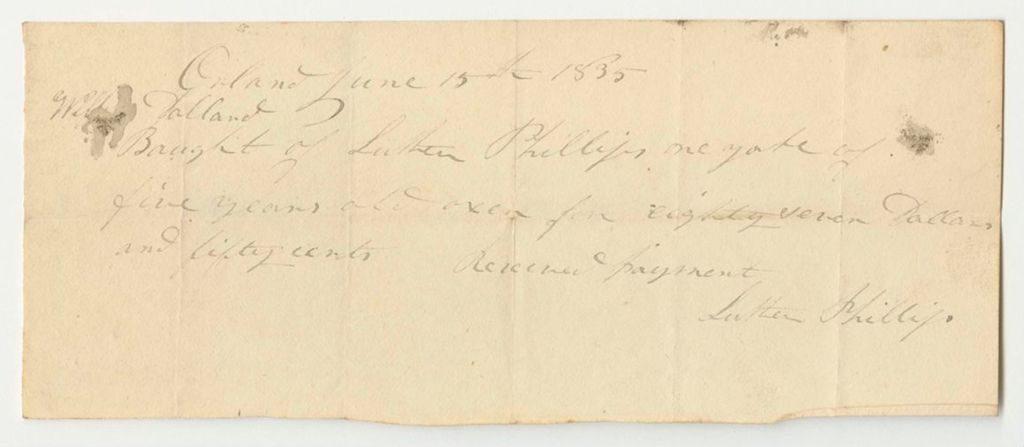 Orland June 15th 1835
Dolland
Baught of Luther Phillips one yoke of
five years old oxen for eighty seven Dollars
and fifty cents Received payment
Luther Phillips